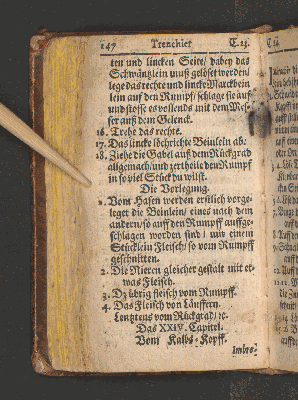 147 Trenchier C.23.
ten und lincken Seite/ dabey das
Schwäntzlein muß gelöset werden/
lege das rechte und lincke Marckbein
lein auff den Rumpf/ schlage sie auf
und stosse es vollends mit dem Mes-
ser auß dem Gelenck.
16. Drehe das rechte.
17. Das lincke
18. Ziehe die Gabel auß dem Rückgrad
allgemach/ und zertheile den Rumpff
in so viel Stück du wilst.
Die Vorlegung.
1. Vom Hasen werden erstlich vorge-
leget die Beinlein/ eines nach dem
andern/ so auff den Rumpff auffge-
schlagen worden sind/ mit einem
Stücklein Fleisch/ so vom Rumpff
geschnitten.
2. Die Nieren gleicher gestalt mit et-
was Fleisch.
3. Dz übrig fleisch vom Rumpff.
4. Das Fleisch von Läufften.
Letztens vom Rückgrad/ ꝛc.
Das XXIV. Capitel.
Vom Kalbs-Kopff.